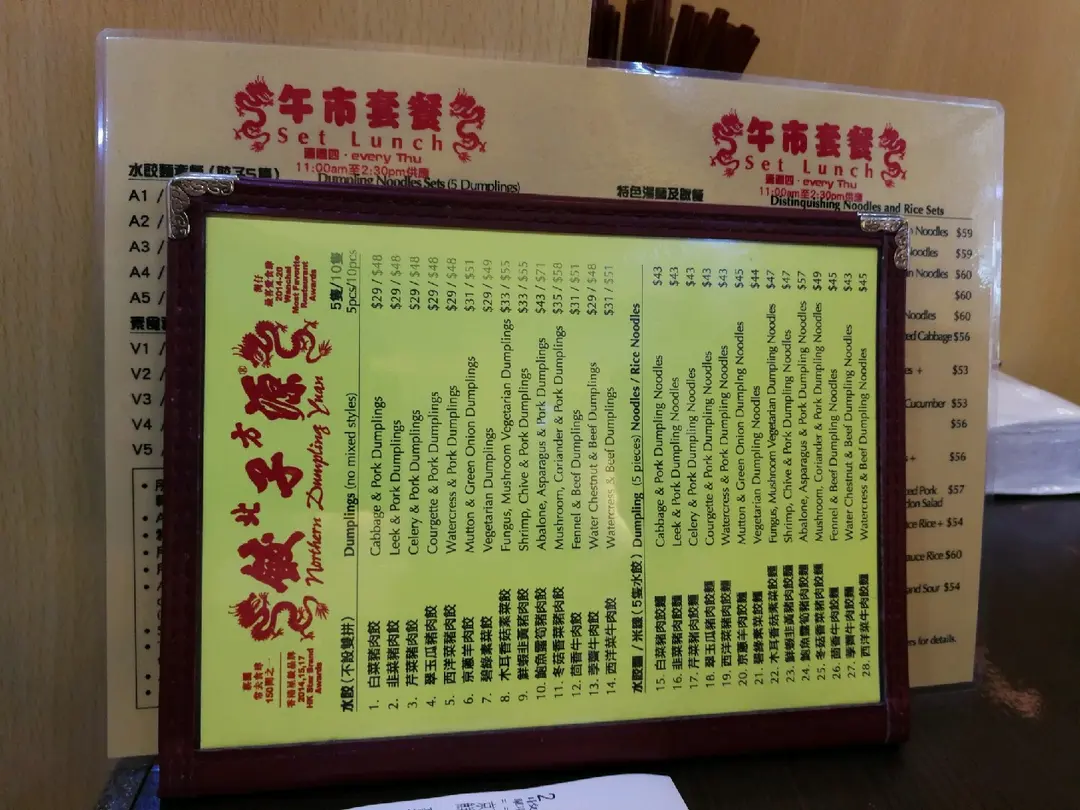 午市套餐
Set Lunch
逢週四 · every Thu
11:00am至2:30pm供應
Dumpling Noodles Sets (5 Dumplings)
A1 /
A2 /
A3 /
A4 /
A5 /
V1 /
V2 /
V3 /
V4 /
V5 /
午市套餐
Set Lunch
逢週四 · every Thu
11:00am至2:30pm供應
Distinguishing Noodles and Rice Sets
Noodles $59
Noodles $59
Noodles $60
$60
Noodles $60
Cabbage $56
+ $53
Cucumber $53
$56
+ $56
Pork $57
Salad
Rice + $54
Rice $60
and Sour $54
for details.
北方
餃子源®
Northern Dumpling Yuan
2014-20
Wanchai
Most Favorite
Restaurant
Awards
香港星級品牌
2014,15,17
HK Star Brand
Awards
水餃(不設雙拼) Dumplings (no mixed styles) 5隻/10隻
5pcs/10pcs
1. 白菜豬肉餃 Cabbage & Pork Dumplings $29 / $48
2. 韭菜豬肉餃 Leek & Pork Dumplings $29 / $48
3. 芹菜豬肉餃 Celery & Pork Dumplings $29 / $48
4. 翠玉瓜豬肉餃 Courgette & Pork Dumplings $29 / $48
5. 西洋菜豬肉餃 Watercress & Pork Dumplings $29 / $48
6. 京蔥羊肉餃 Mutton & Green Onion Dumplings $31 / $51
7. 碧綠素菜餃 Vegetarian Dumplings $29 / $49
8. 木耳香菇素菜餃 Fungus, Mushroom Vegetarian Dumplings $33 / $55
9. 鮮蝦韭黃豬肉餃 Shrimp, Chive & Pork Dumplings $33 / $55
10. 鮑魚露筍豬肉餃 Abalone, Asparagus & Pork Dumplings $43 / $71
11. 冬菇香菜豬肉餃 Mushroom, Coriander & Pork Dumplings $35 / $58
12. 茴香牛肉餃 Fennel & Beef Dumplings $31 / $51
13. 荸薺牛肉餃 Water Chestnut & Beef Dumplings $29 / $48
14. 西洋菜牛肉餃 Watercress & Beef Dumplings $31 / $51
水餃麵 / 米線 (5隻水餃) Dumpling (5 pieces) Noodles / Rice Noodles
15. 白菜豬肉餃麵 Cabbage & Pork Dumpling Noodles $43
16. 韭菜豬肉餃麵 Leek & Pork Dumpling Noodles $43
17. 芹菜豬肉餃麵 Celery & Pork Dumpling Noodles $43
18. 翠玉瓜豬肉餃麵 Courgette & Pork Dumpling Noodles $43
19. 西洋菜豬肉餃麵 Watercress & Pork Dumpling Noodles $43
20. 京蔥羊肉餃麵 Mutton & Green Onion Dumpling Noodles $45
21. 碧綠素菜餃麵 Vegetarian Dumpling Noodles $44
22. 木耳香菇素菜餃麵 Fungus, Mushroom Vegetarian Dumpling Noodles $47
23. 鮮蝦韭黃豬肉餃麵 Shrimp, Chive & Pork Dumpling Noodles $47
24. 鮑魚露筍豬肉餃麵 Abalone, Asparagus & Pork Dumpling Noodles $57
25. 冬菇香菜豬肉餃麵 Mushroom, Coriander & Pork Dumpling Noodles $49
26. 茴香牛肉餃麵 Fennel & Beef Dumpling Noodles $45
27. 荸薺牛肉餃麵 Water Chestnut & Beef Dumpling Noodles $43
28. 西洋菜牛肉餃麵 Watercress & Beef Dumpling Noodles $45